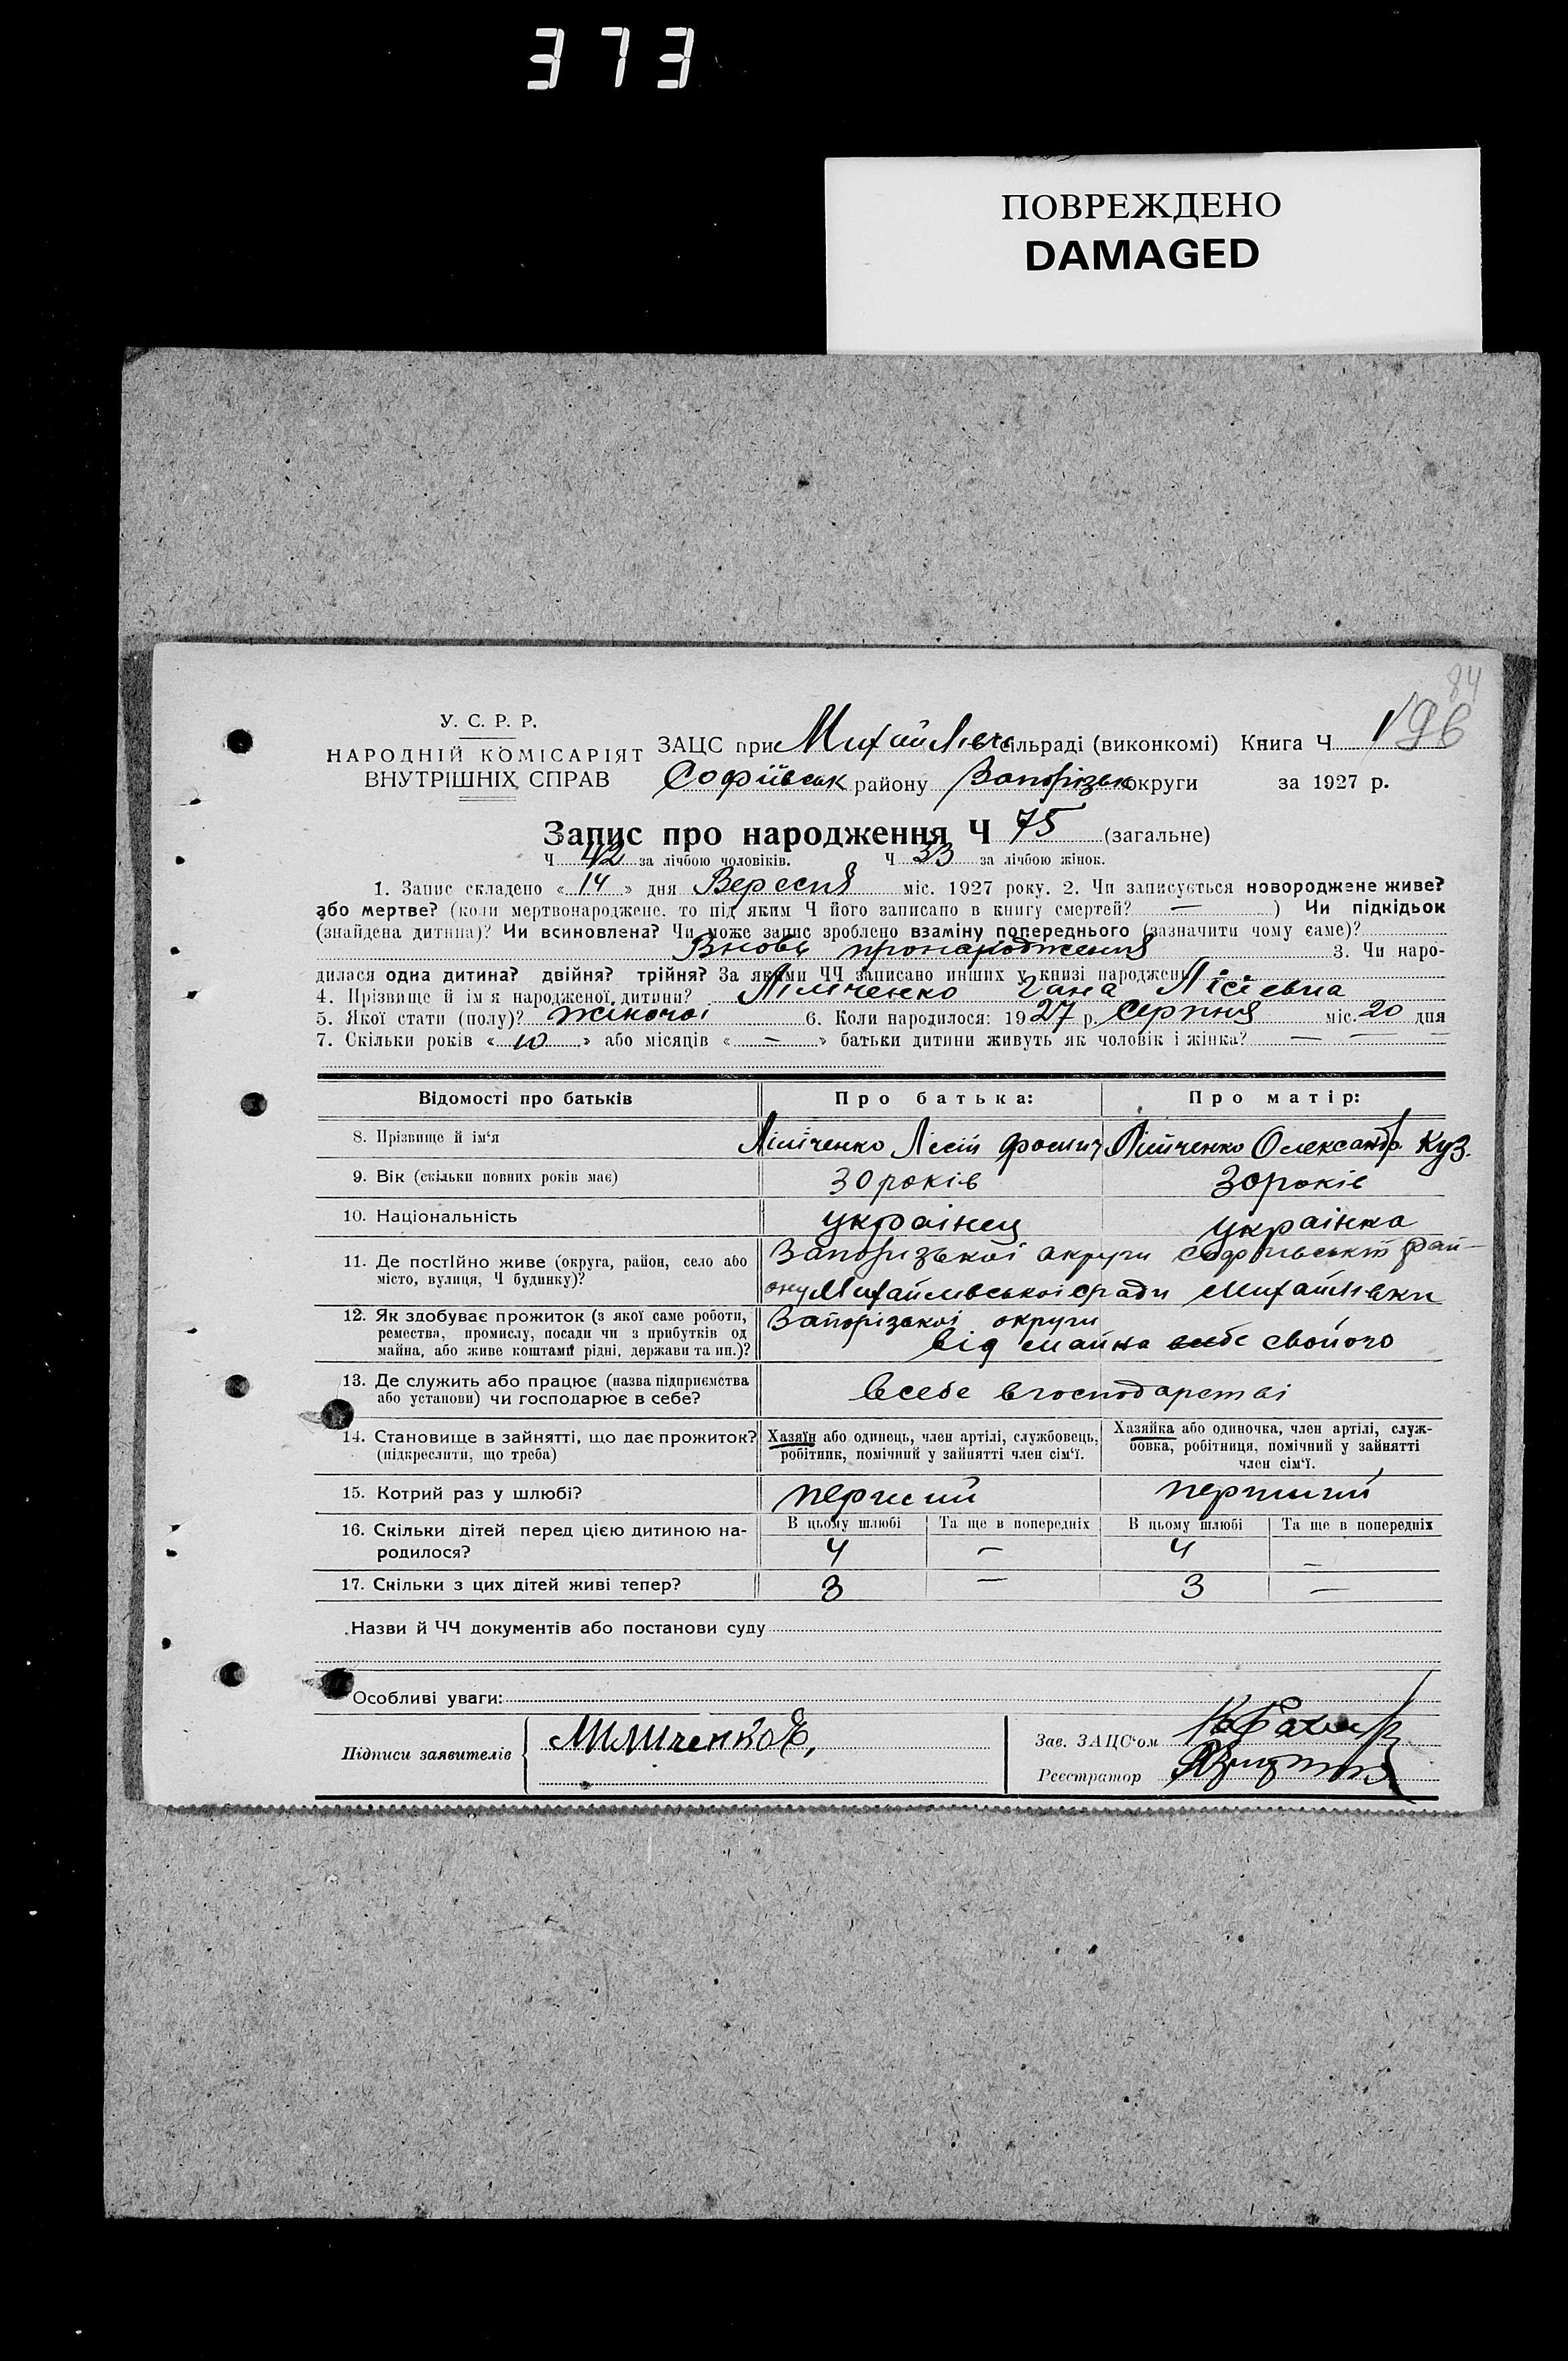 373
ПОВРЕЖДЕНО
DAMAGED
84
196
У. С. Р. Р.
НАРОДНІЙ КОМІСАРІЯТ
ВНУТРІШНІХ СПРАВ
ЗАЦС при Михайлівс сільраді (виконкомі) Книга Ч 1
Софіївськ району Запорізьк округи за 1927 р.
Запис про народження Ч 75 (загальне)
Ч 42 за лічбою чоловіків. Ч 33 за лічбою жінок.
1. Запис складено « 14 » дня Вересня міс. 1927 року. 2. Чи записується новороджене живе?
або мертве? (коли мертвонароджене, то під яким Ч його записано в книгу смертей? — ) Чи підкідьок
(знайдена дитина)? Чи всиновлена? Чи може запис зроблено взаміну попереднього (зазначити чому саме)?
Вновь пронародження 3. Чи наро-
дилася одна дитина? двійня? трійня? За якими ЧЧ записано инших у книзі народжень
4. Прізвище й ім'я народженої дитини? Гана
5. Якої стати (полу)? жіночоі 6. Коли народилося: 1927 р. Серпня міс. 20 дня
7. Скільки років « 10 » або місяців « — » батьки дитини живуть як чоловік і жінка? — —
Відомості про батьків Про батька: Про матір:
8. Прізвище й ім'я Олександр. Куз.
9. Вік (скільки повних років має) 30 років 30 років
10. Національність украінец украінка
11. Де постійно живе (округа, район, село або місто, вулиця, Ч будинку)?
Запорізькоі округи Софіівськ рай-
ону Михайлівськоі с ради Михайлівки
12. Як здобуває прожиток (з якої саме роботи, ремества, промислу, посади чи з прибутків од майна, або живе коштами рідні, держави та ин.)?
Запорізькоі округи
від майна свойого
13. Де служить або працює (назва підприємства або установи) чи господарює в себе?
всебе вгосподарстві
14. Становище в зайнятті, що дає прожиток? (підкреслити, що треба)
Хазяїн або одинець, член артілі, службовець, робітник, помічний у зайнятті член сім'ї.
Хазяйка або одиночка, член артілі, служ-
бовка, робітниця, помічний у зайнятті
член сім'ї.
15. Котрий раз у шлюбі? перший перший
16. Скільки дітей перед цією дитиною на-
родилося?
В цьому шлюбі Та ще в попередніх В цьому шлюбі Та ще в попередніх
4 — 4 —
17. Скільки з цих дітей живі тепер? 3 — 3 —
Назви й ЧЧ документів або постанови суду
Особливі уваги:
Підписи заявителів
Зав. ЗАЦС'ом
Реєстратор